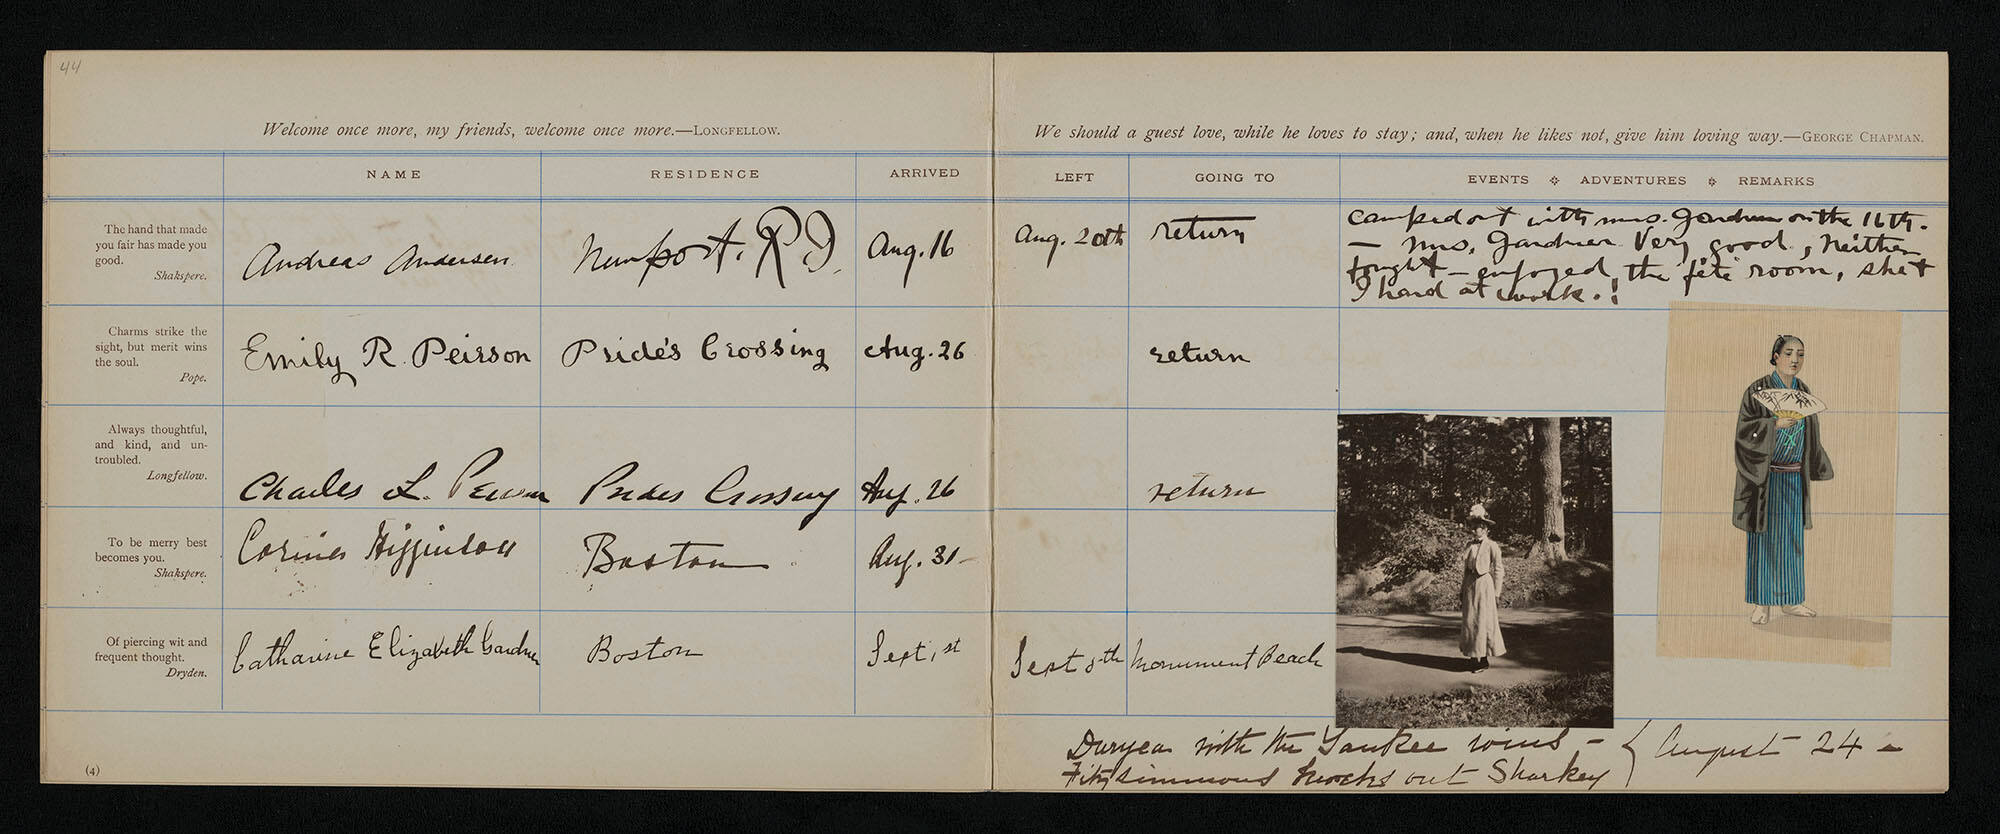 44
Welcome once more, my friends, welcome once more.—LONGFELLOW.
NAME RESIDENCE ARRIVED
The hand that made
you fair has made you
good.
Shakspere.
Andreas Andersen Newport. R.I. Aug. 16
Charms strike the
sight, but merit wins
the soul.
Pope.
Emily R. Peirson Pride's Crossing Aug. 26
Always thoughtful,
and kind, and un-
troubled.
Longfellow.
Charles L. Peirson Prides Crossing Aug. 26
To be merry best
becomes you.
Shakspere.
Corina Higginson Boston Aug. 31-
Of piercing wit and
frequent thought.
Dryden.
Catharine Elizabeth Gardner Boston Sept. 1st
(4)
We should a guest love, while he loves to stay; and, when he likes not, give him loving way.—GEORGE CHAPMAN.
LEFT GOING TO EVENTS ADVENTURES REMARKS
Aug. 20th return
Camped out with Mrs. Gardner on the 16th.
— Mrs. Gardner Very good, Neither
fought — enjoyed the fête room, she &
I hard at work.!
return
return
Sept 5th Monument Beach
Duryea with the Yankee wins —
Fitzsimmons knocks out Sharkey
August 24 —